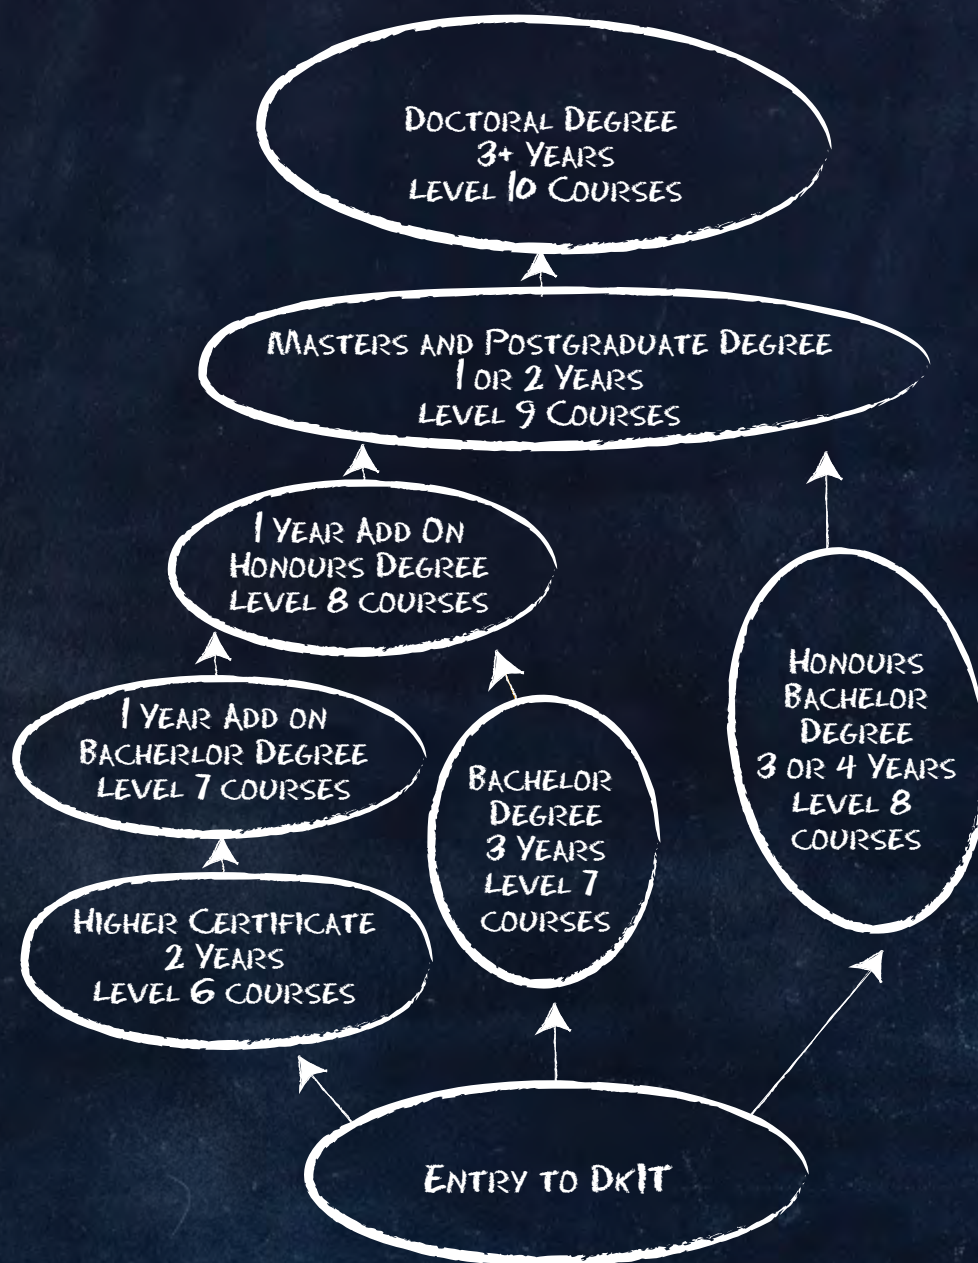 Doctoral Degree
3+ Years
Level 10 Courses
Masters and Postgraduate Degree
1 or 2 Years
Level 9 Courses
1 Year Add On
Honours Degree
Level 8 courses
Honours
Bachelor
Degree
3 or 4 Years
Level 8
courses
1 Year Add on
Bacherlor Degree
Level 7 courses
Bachelor
Degree
3 Years
Level 7
courses
Higher Certificate
2 Years
Level 6 courses
Entry to DkIT